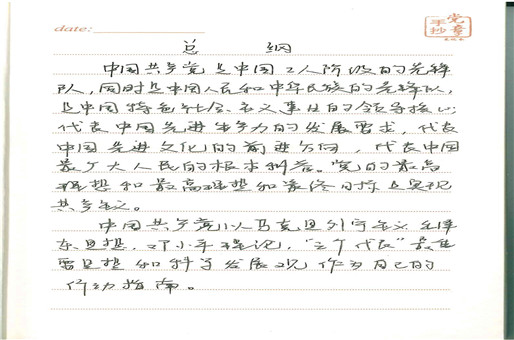 date:
手抄党章
总 纲
中国共产党是中国工人阶级的先锋
队，同时是中国人民和中华民族的先锋队，
是中国特色社会主义事业的领导核心
代表中国先进生产力的发展要求，代表
中国先进文化的前进方向，代表中国
最广大人民的根本利益。党的最高
理想和最高理想和最终目标是实现
共产主义。
中国共产党以马克思列宁主义 毛泽
东思想，邓小平理论，“三个代表”重要
思想和科学发展观作为自己的
行动指南。